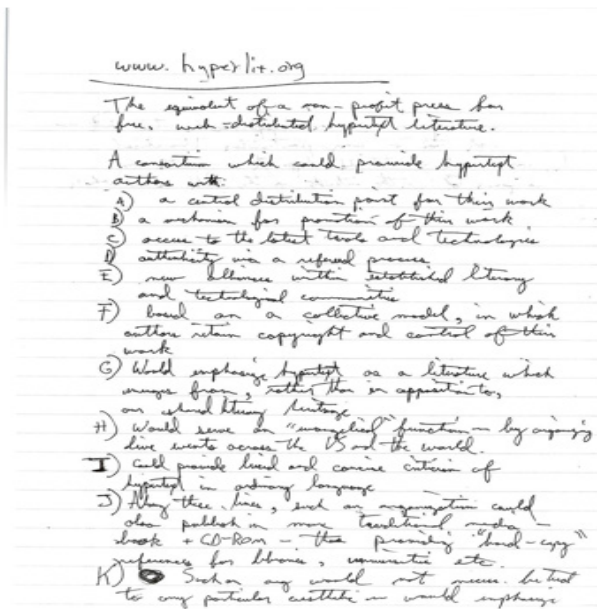 www.hyperlit.org
The equivalent of a non-profit press for
free, web-distributed hypertext literature.
A consortium which could provide hypertext
authors with:
A) a central distribution point for their work
B) a mechanism for promotion of their work
C) access to the latest tools and technologies
D) authenticity via a refereed process
E) new alliances within established literary
and technological communities
F) based on a collective model, in which
authors retain copyright and control of their
work
G) Would emphasize hypertext as a literature which
emerges from, rather than in opposition to,
our shared literary heritage
H) Would serve an "evangelical" function - by organizing
live events across the US and the world.
I) Could provide lucid and concise criticism of
hypertext in ordinary language
J) Along these lines, such an organization could
also publish in more traditional media -
book + CD-ROM - thus providing "hard-copy"
references for libraries, universities etc.
K) Such an org would not necess. be tied
to any particular aesthetic - would emphasize